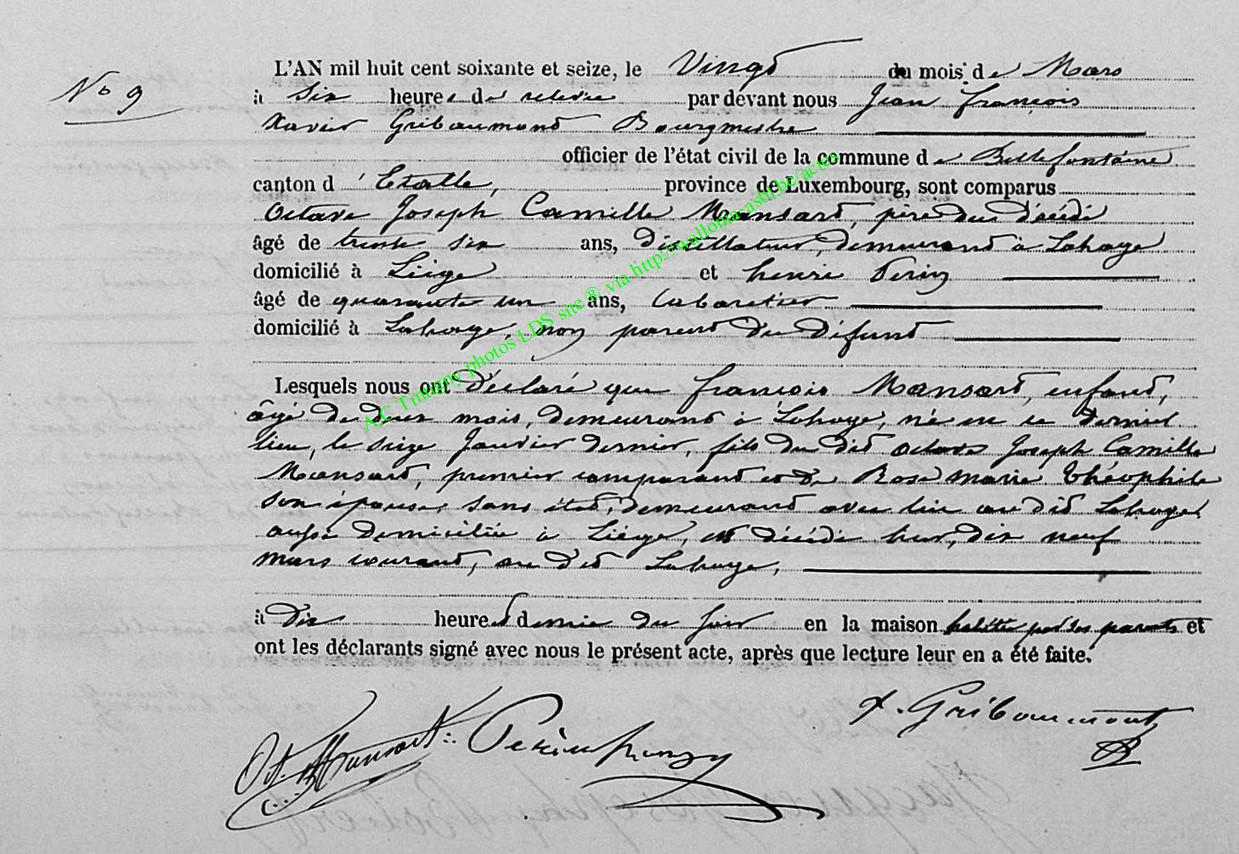 No 9
L'AN mil huit cent soixante et seize, le Vingt du mois de Mars
à six heures de relevée par devant nous Jean François
Xavier Gribaumont Bourgmestre
officier de l'état civil de la commune de Bellefontaine
canton d'Etalle, province de Luxembourg, sont comparus
Octave Joseph Camille Mansart, père du décédé
âgé de trente six ans, distillateur, demeurant à Lahage
domicilié à Liège et henri Perin
âgé de quarante un ans, Cabaretier
domicilié à Lahage, non parent du défunt
Lesquels nous ont déclaré que françois Mansart, enfant,
âgé de deux mois, demeurant à Lahage, né en ce dernier
lieu, le seize Janvier dernier, fils du dit Octave Joseph Camille
Mansart, premier comparant et de Rose Marie Théophile
son épouse, sans état, demeurant avec lui au dit Lahage,
aussi domiciliée à Liège, est décédé hier, dix neuf
mars courant, au dit Lahage,
à Dix heures demie du soir en la maison habitée par ses parents et
ont les déclarants signé avec nous le présent acte, après que lecture leur en a été faite.
Mansart Perin X. Gribaumont
AC Tintigny photos LDS snc ® via http://walloniasasbl.be/actes